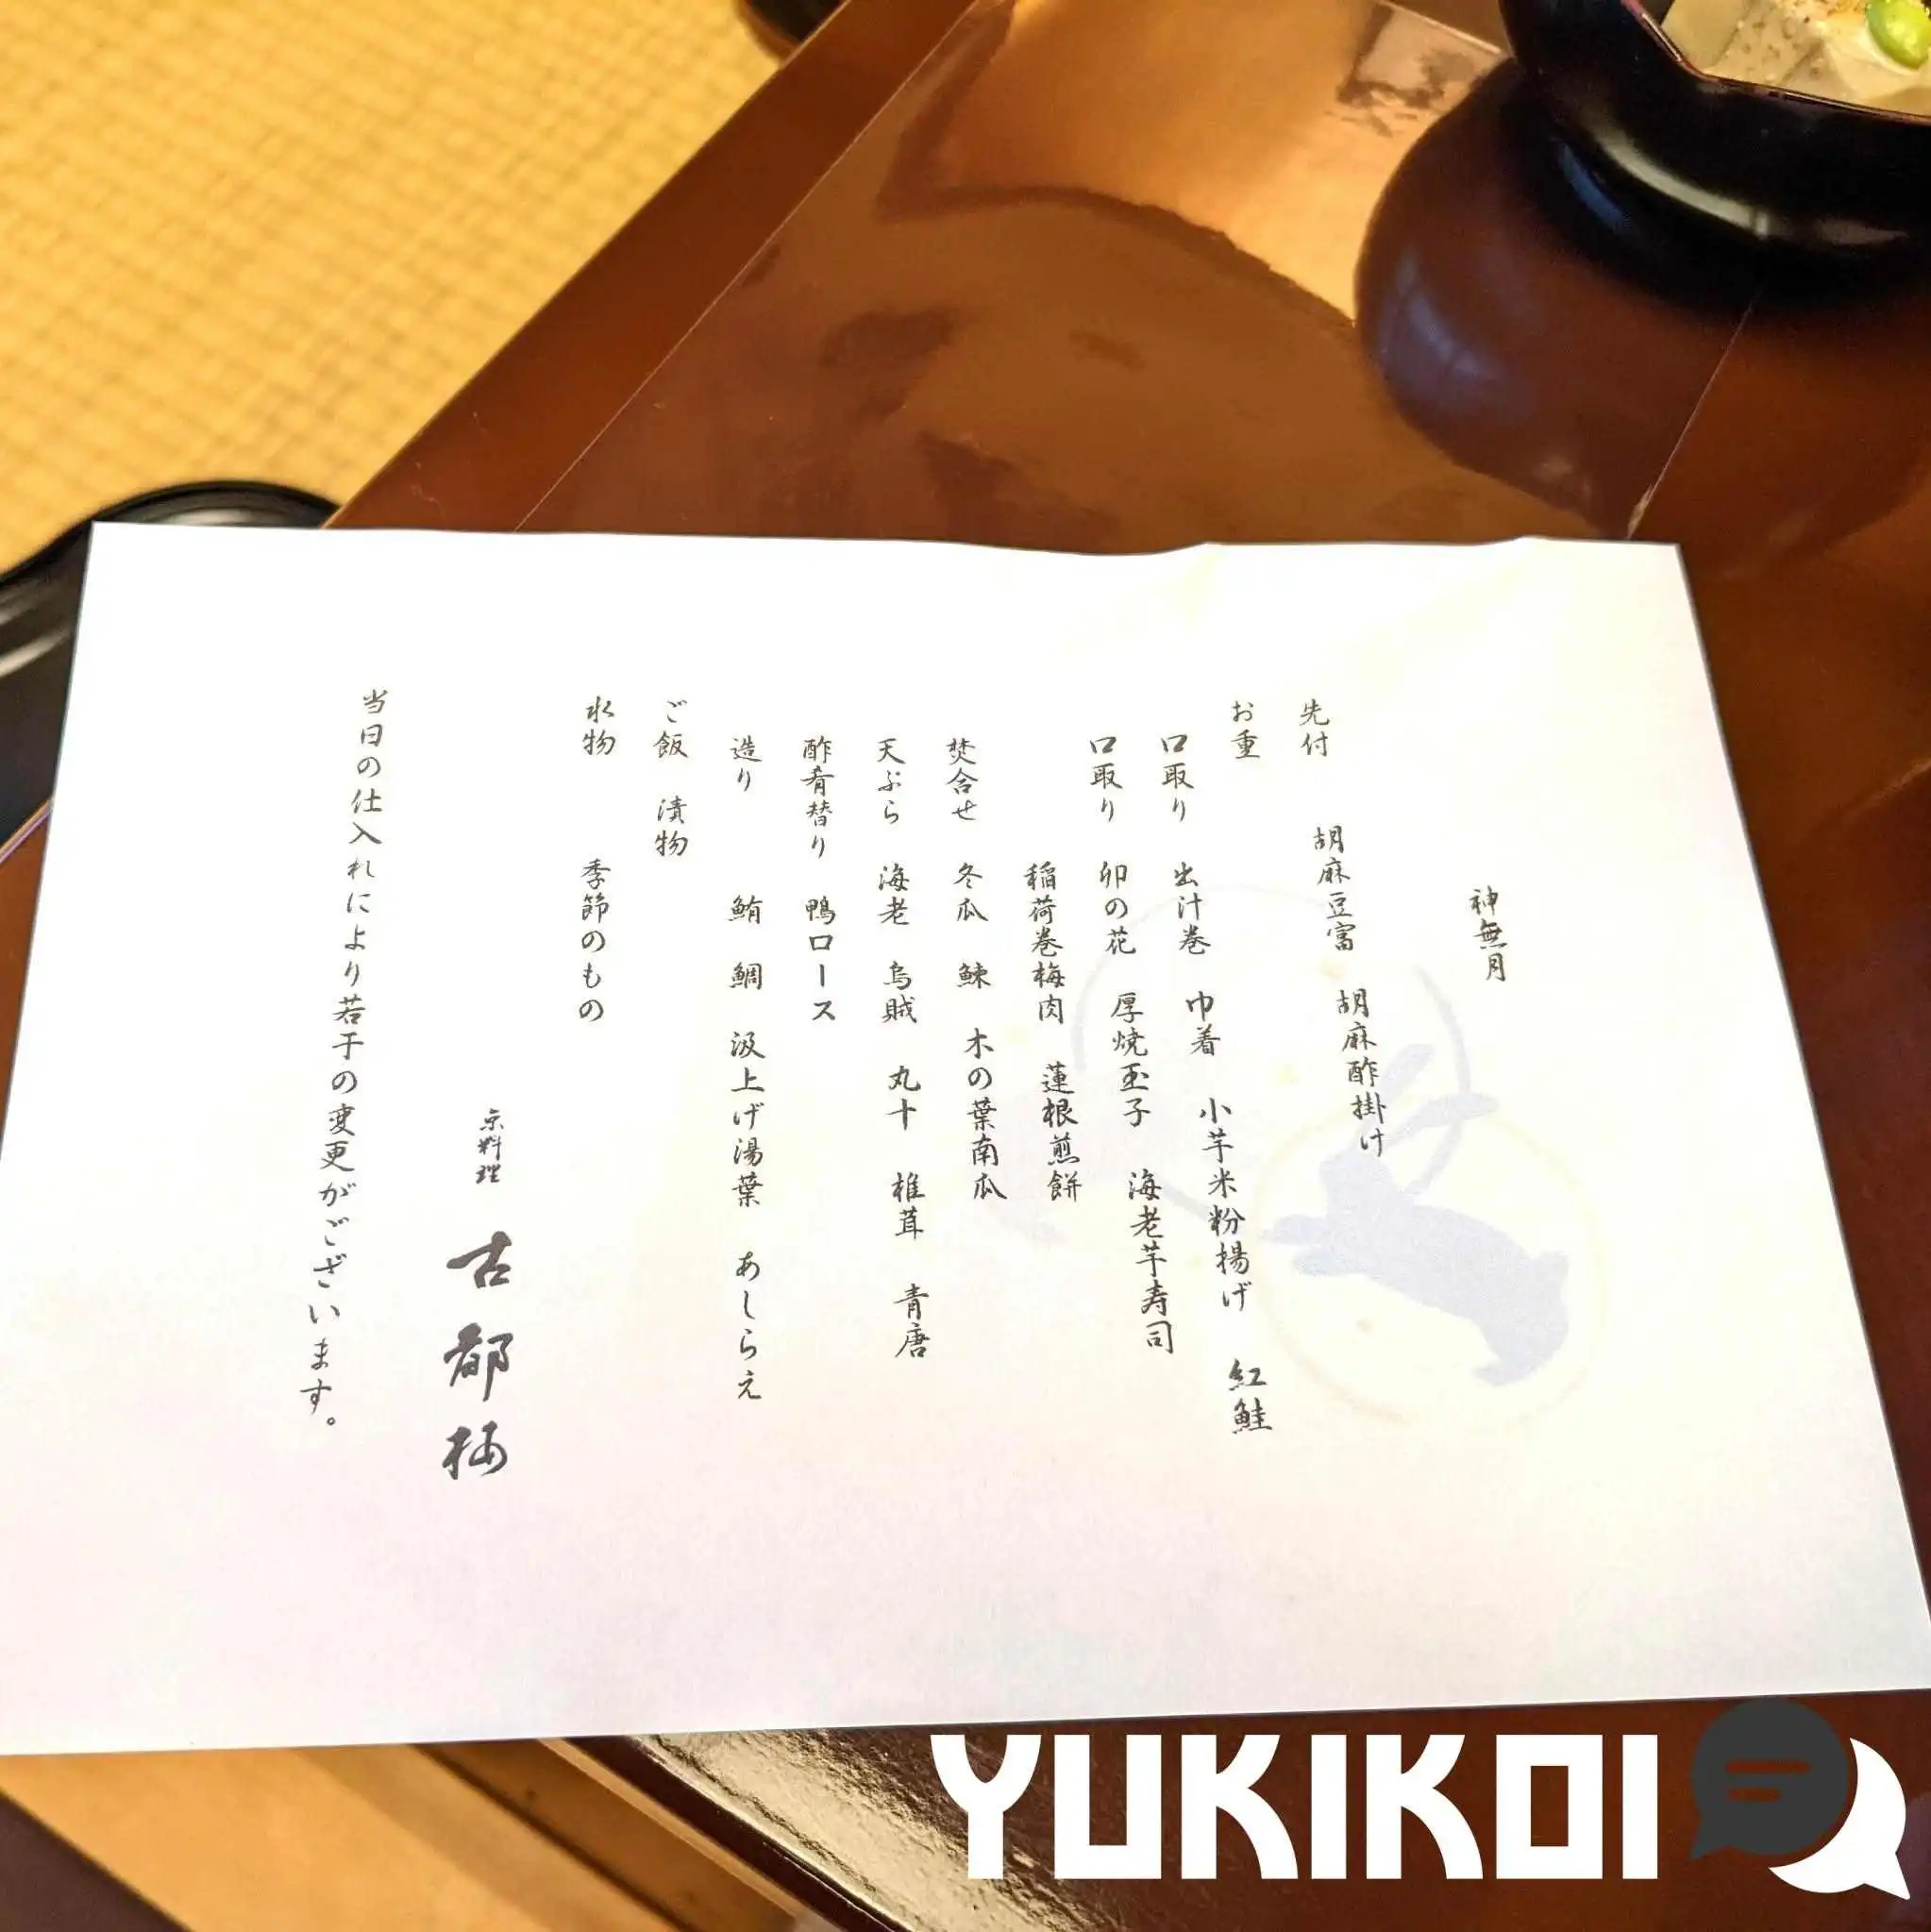 神無月
先付 胡麻豆富 胡麻酢掛け
お重
口取り 出汁巻 巾着 小芋米粉揚げ 紅鮭
口取り 卯の花 厚焼玉子 海老芋寿司
稲荷巻梅肉 蓮根煎餅
焚合せ 冬瓜 鰊 木の葉南瓜
天ぶら 海老 烏賊 丸十 椎茸 青唐
酢肴替り 鴨ロース
造り 鮪 鯛 汲上げ湯葉 あしらえ
ご飯 漬物
水物 季節のもの
京料理 古都梅
当日の仕入れにより若干の変更がございます。
YUKIKOI